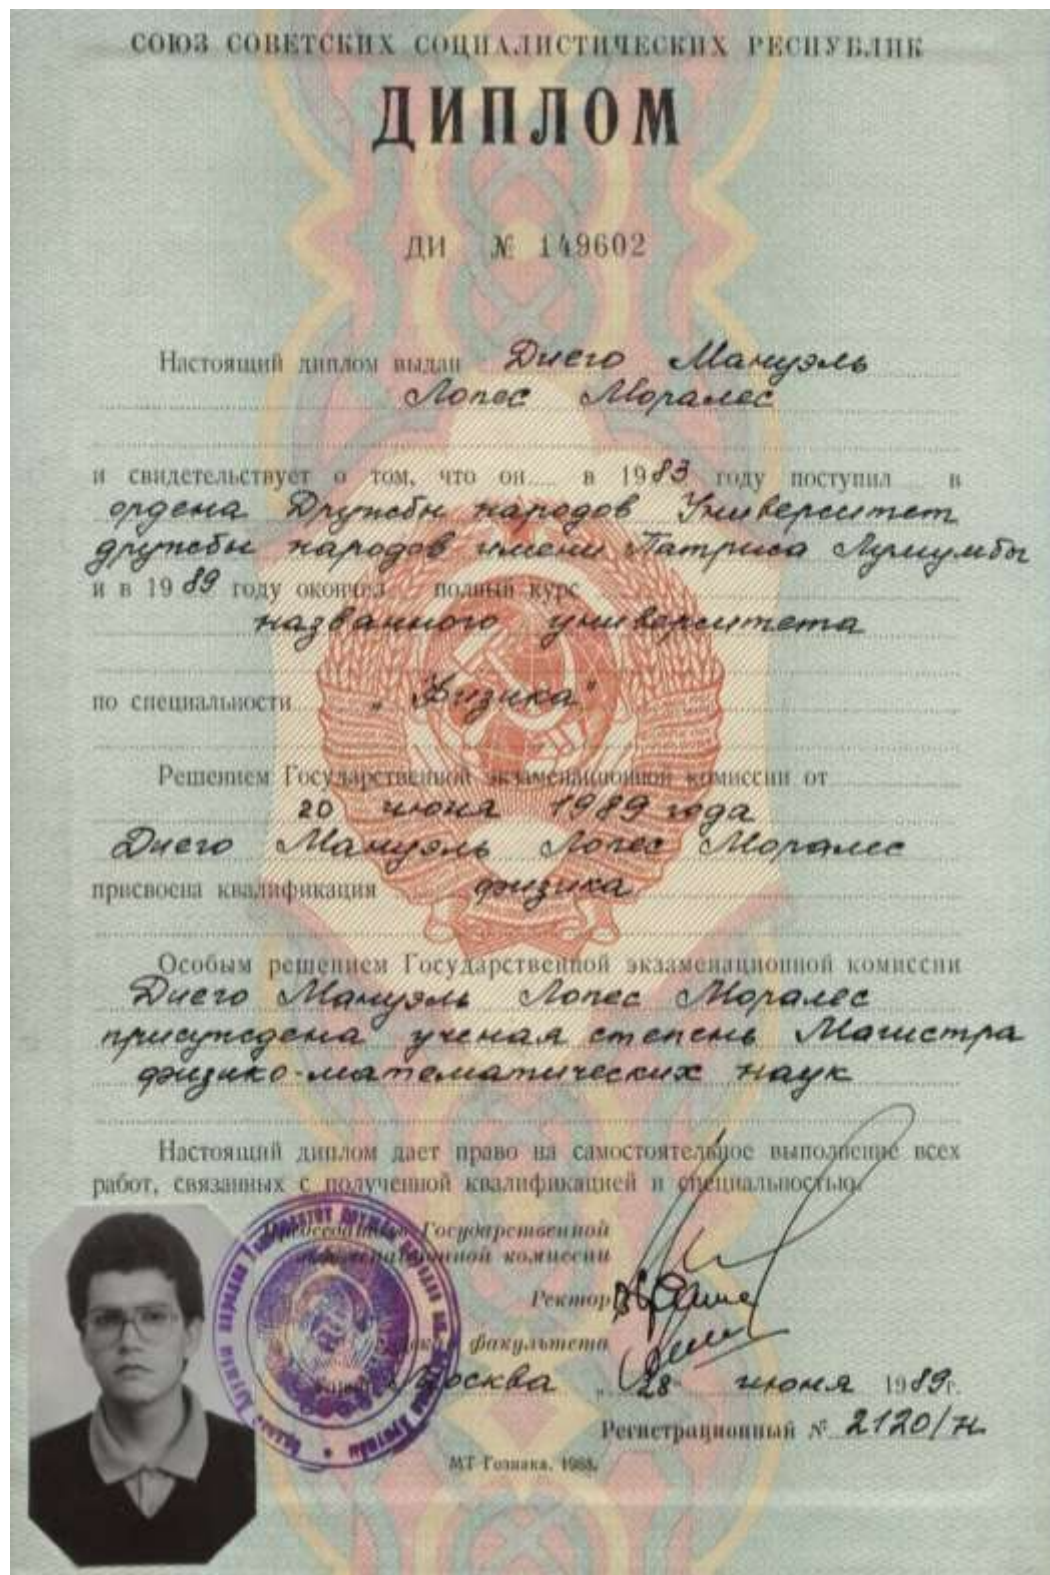 СОЮЗ СОВЕТСКИХ СОЦИАЛИСТИЧЕСКИХ РЕСПУБЛИК
ДИПЛОМ
ДИ № 149602
Настоящий диплом выдан Диего Мануэль
Лопес Моралес
и свидетельствует о том, что он в 1983 году поступил в
ордена Дружбы народов Университет
дружбы народов имени Патриса Лумумбы
и в 1989 году окончил полный курс
названного университета
по специальности „Физика"
Решением Государственной экзаменационной комиссии от
20 июня 1989 года
Диего Мануэль Лопес Моралес
присвоена квалификация физика
Особым решением Государственной экзаменационной комиссии
Диего Мануэль Лопес Моралес
присуждена ученая степень Магистра
физико-математических наук
Настоящий диплом дает право на самостоятельное выполнение всех
работ, связанных с полученной квалификацией и специальностью.
Председатель Государственной
экзаменационной комиссии
Ректор
Декан факультета
Москва „28" июня 1989г.
Регистрационный № 2120/н
МТ Гознака. 1988.